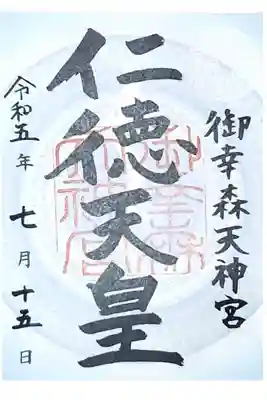 御幸森天神宮
仁徳天皇
令和五年七月十五日